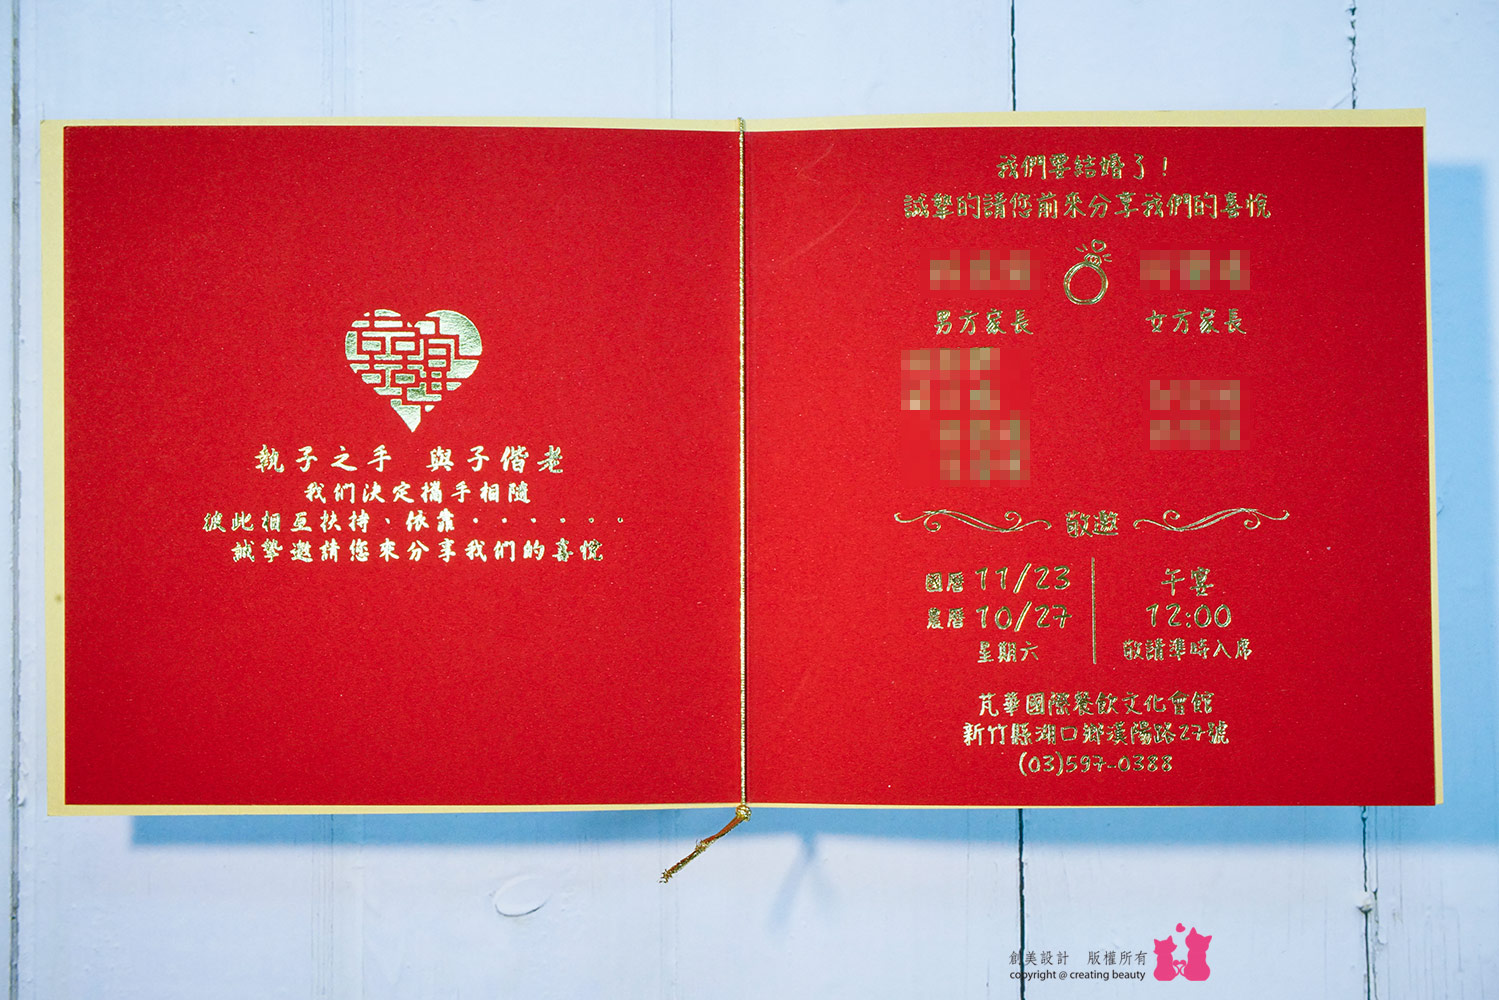 執子之手 與子偕老
我们決定攜手相隨
彼此相互扶持、依靠......
誠摯邀請您來分享我们的喜悅
我們要結婚了！
誠摯的請您前來分享我們的喜悅
男方家長 女方家長
敬邀
國曆 11/23
農曆 10/27
星期六
午宴
12:00
敬請準時入席
芃華國際餐飲文化會館
新竹縣湖口鄉漢陽路27號
(03)597-0388
創美設計 版權所有
copyright @ creating beauty